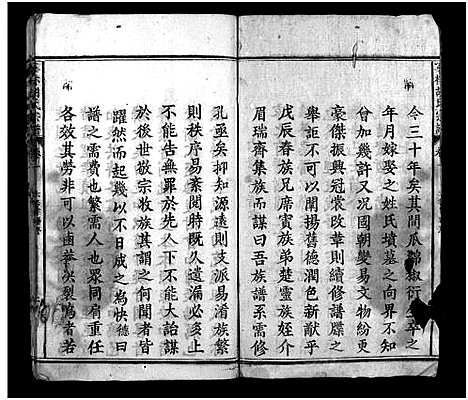 今三十年矣其間瓜綿椒衍生卒之
年月嫁娶之姓氏墳墓之向界不知
曾加幾許又况國朝變易文物紛更
豪傑振興冠裳改革則續修譜牒之
舉詎不可以闡揚舊德潤色新猷乎
戊辰春族兄席賓族弟楚靈族姪介
眉瑞齊集族而謀曰吾族譜系需修
孔亟矣抑知源遠則支派易淆族繁
則秩序易紊閱時既久遺漏必多不
不能無罪於先人下不能大詒謀
於後世敬宗收族其謂之何聞者皆
躍然而起幾以不日成之為快德曰
譜之需費也繁需人也眾同肩重任
各效其勞非可以由

裂鳴者若